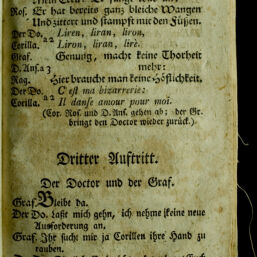 Ros. Er hat bereits ganz bleiche Wangen
Und zittert und stampft mit den Füßen.
Der Do. Liren, liran, liron,
Corilla. a 2 Liron, liran, lire.
Graf. Genung, macht keine Thorheit
D. Ans. a 3 mehr:
Rag. Hier braucht man keine Höflichkeit.
Der Do. C'est ma bizarrerie:
Corilla. a 2 Il danse amour pour moi.
(Cor. Ros. und D. Ans. gehen ab: der Gr.
bringt den Doctor wieder zurück.).
Dritter Auftritt.
Der Doctor und der Graf.
Graf. Bleibt da.
Der Do. Laßt mich gehn, ich nehme keine neue
Ausforderung an.
Graf. Ihr sucht mir ja Corillen ihre Hand zu
rauben.